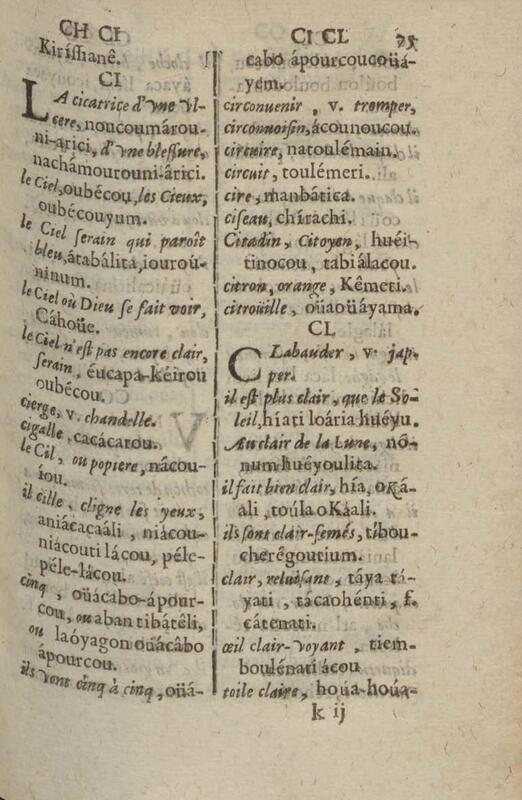 CH CI
Kiriſſianê.
CI
LA cicatrice d'vne vl-
cere, noucoumárou-
ni-arici, d'vne bleſſure,
nachámourouni-árici.
le Ciel, oubécou, les Cieux,
oubécouyum.
le Ciel ſerain qui paroît
bleu, átabálita, iouroú-
ninum.
le Ciel où Dieu ſe fait voir,
Cáhoüe.
le Ciel n'eſt pas encore clair,
ſerain, éucapa-kéirou
oubécou.
cierge, v. chandelle.
cigalle, cacácarou.
le Cil, ou popiere, nácou-
íou.
il cille, cligne les yeux,
aniácacaáli, niácou-
niácouti lácou, péle-
péle-lácou.
cinq, oüácabo-ápour-
cou, ou aban tibátéli,
ou laóyagon oüácâbo
ápourcou.
ils vont cinq à cinq, oüá-
CI CL 75
cabo ápourcoucoüá-
yem.
circonuenir, v. tromper,
circonuoiſin, ácounoucou.
circuire, natoulémain.
circuit, toulémeri.
cire, manbática.
ciſeau, chírachi.
Citadin, Citoyen, huéi-
tinocou, tabiálacou.
citron, orange, Kêmeti.
citroüille, oüaoüáyama.
CL
CLabauder, v. jap-
per.
il eſt plus clair, que le So-
leil, híati loária huéyu.
Au clair de la Lune, nó-
num huéyoulita.
il fait bien clair, hía, oKá-
ali, toúla oKáali.
ils ſont clair-ſemés, tíbou-
cherêgoutium.
clair, reluiſant, táya tá-
yati, tácaohénti, f.
cátenati.
œil clair-voyant, tiem-
boulénati ácou
toile claire, hoúa-hoúa-
k ij